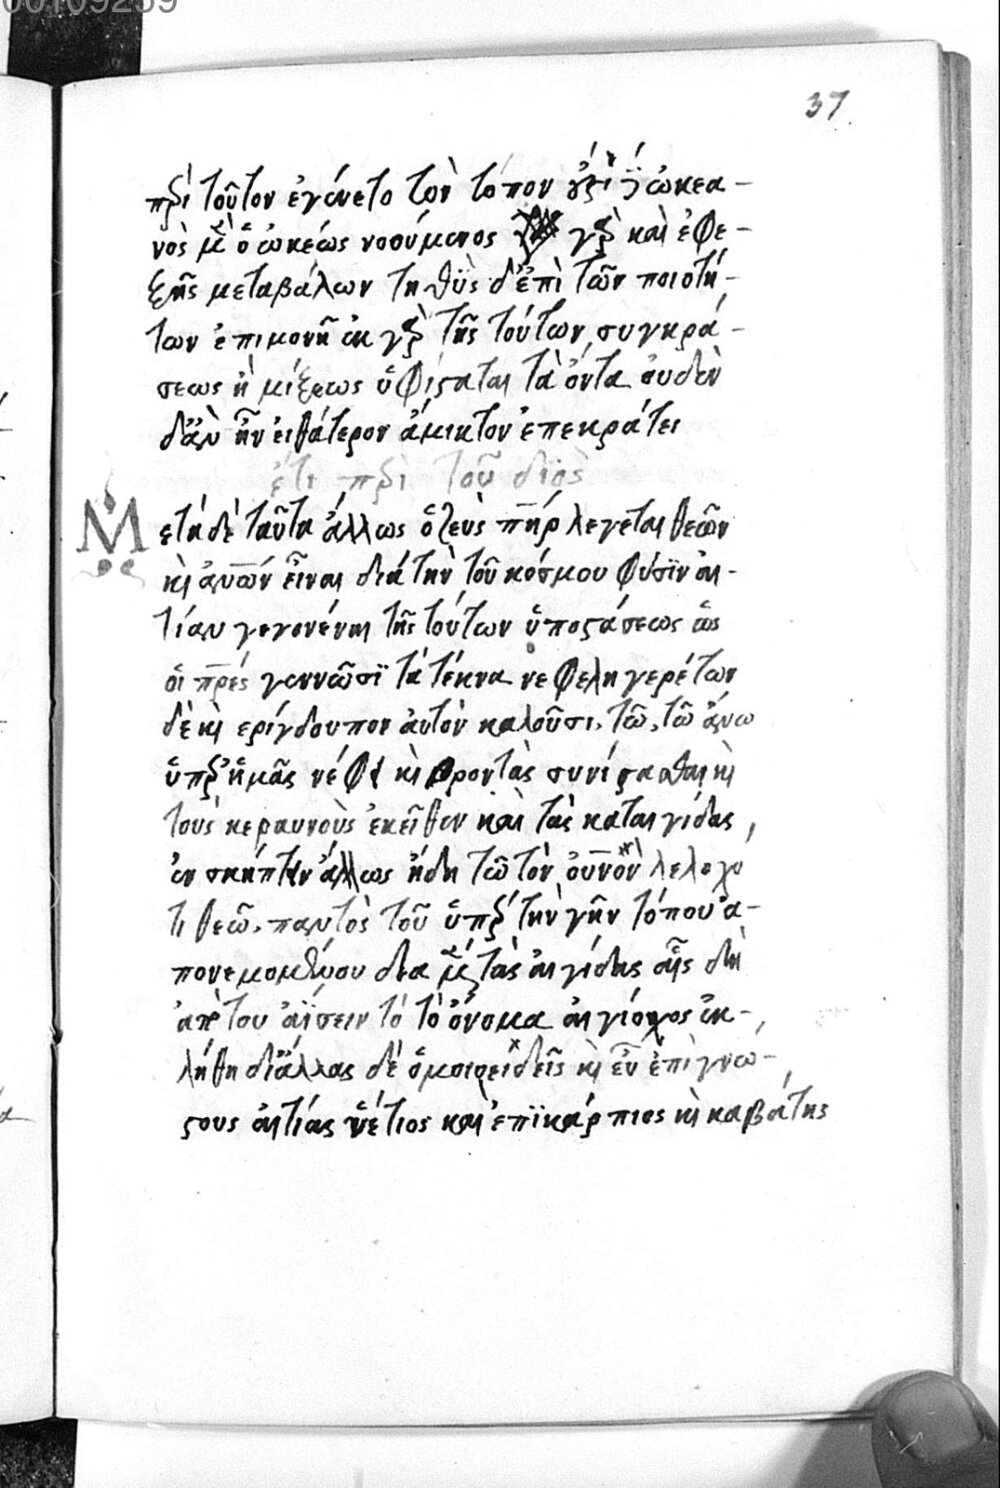 00109259
37
πρὶ τοῦτον ἐγένετο τὸν τόπον ὠκεα-
νὸς μὲν ὁ ὠκέως νοούμενος γὰρ καὶ ἐφε-
ξῆς μεταβάλων τηθὺς δ' ἐπὶ τῶν ποιοτή-
των ἐπιμονῆ ἐκ γὰρ τῆς τούτων συγκρά-
σεως ἢ μίξεως ὑφίσταται τὰ ὄντα οὐδὲν
δἂν ἦν εἰ θάτερον ἄμικτον ἐπεκράτει
ἔτι πρὶ τοῦ διὸς
Μετὰ δὲ ταῦτα ἄλλως ὁ ζεὺς πῆρ λεγεται θεῶν
κὶ ἀνων εἶναι διὰ τὴν τοῦ κόσμου φύσϊν αἰ-
τίαν γεγονέναι τῆς τούτων ὑποστάσεως ὡς
οἱ πρές γεννῶσϊ τὰ τέκνα νεφεληγερέτων
δὲ κὶ ερίγδουπον ἀυτὸν καλοῦσι, τῶ, τῶ ἄνω
ὑπὲρ ἡμᾶς νέφη κὶ βροντὰς συνίστασθαι κὶ
τοὺς κεραυνοὺς ἐκεῖθεν καὶ τὰς καταιγίδας,
ἐνσκήπτειν ἄλλως ἤδη τῶ τὸν οὐνον λελογχό
τι θεῶ, παντὸς τοῦ ὑπὲρ τὴν γῆν τόπου ἀ-
πονεμομένου δια μὲν τὰς αἰγίδας αἷς δὴ
ἀπὸ του ἀΐσειν τὸ τὸ ὄνομα αἰγιόχος ἐκ-
λήθη δἰ ἄλλας δὲ ὁμοιοειδεῖς κὶ εὖ ἐπὶγνώ-
στους αἰτίας ὑέτιος καὶ ἐπϊκάρπιος κὶ καβάτης